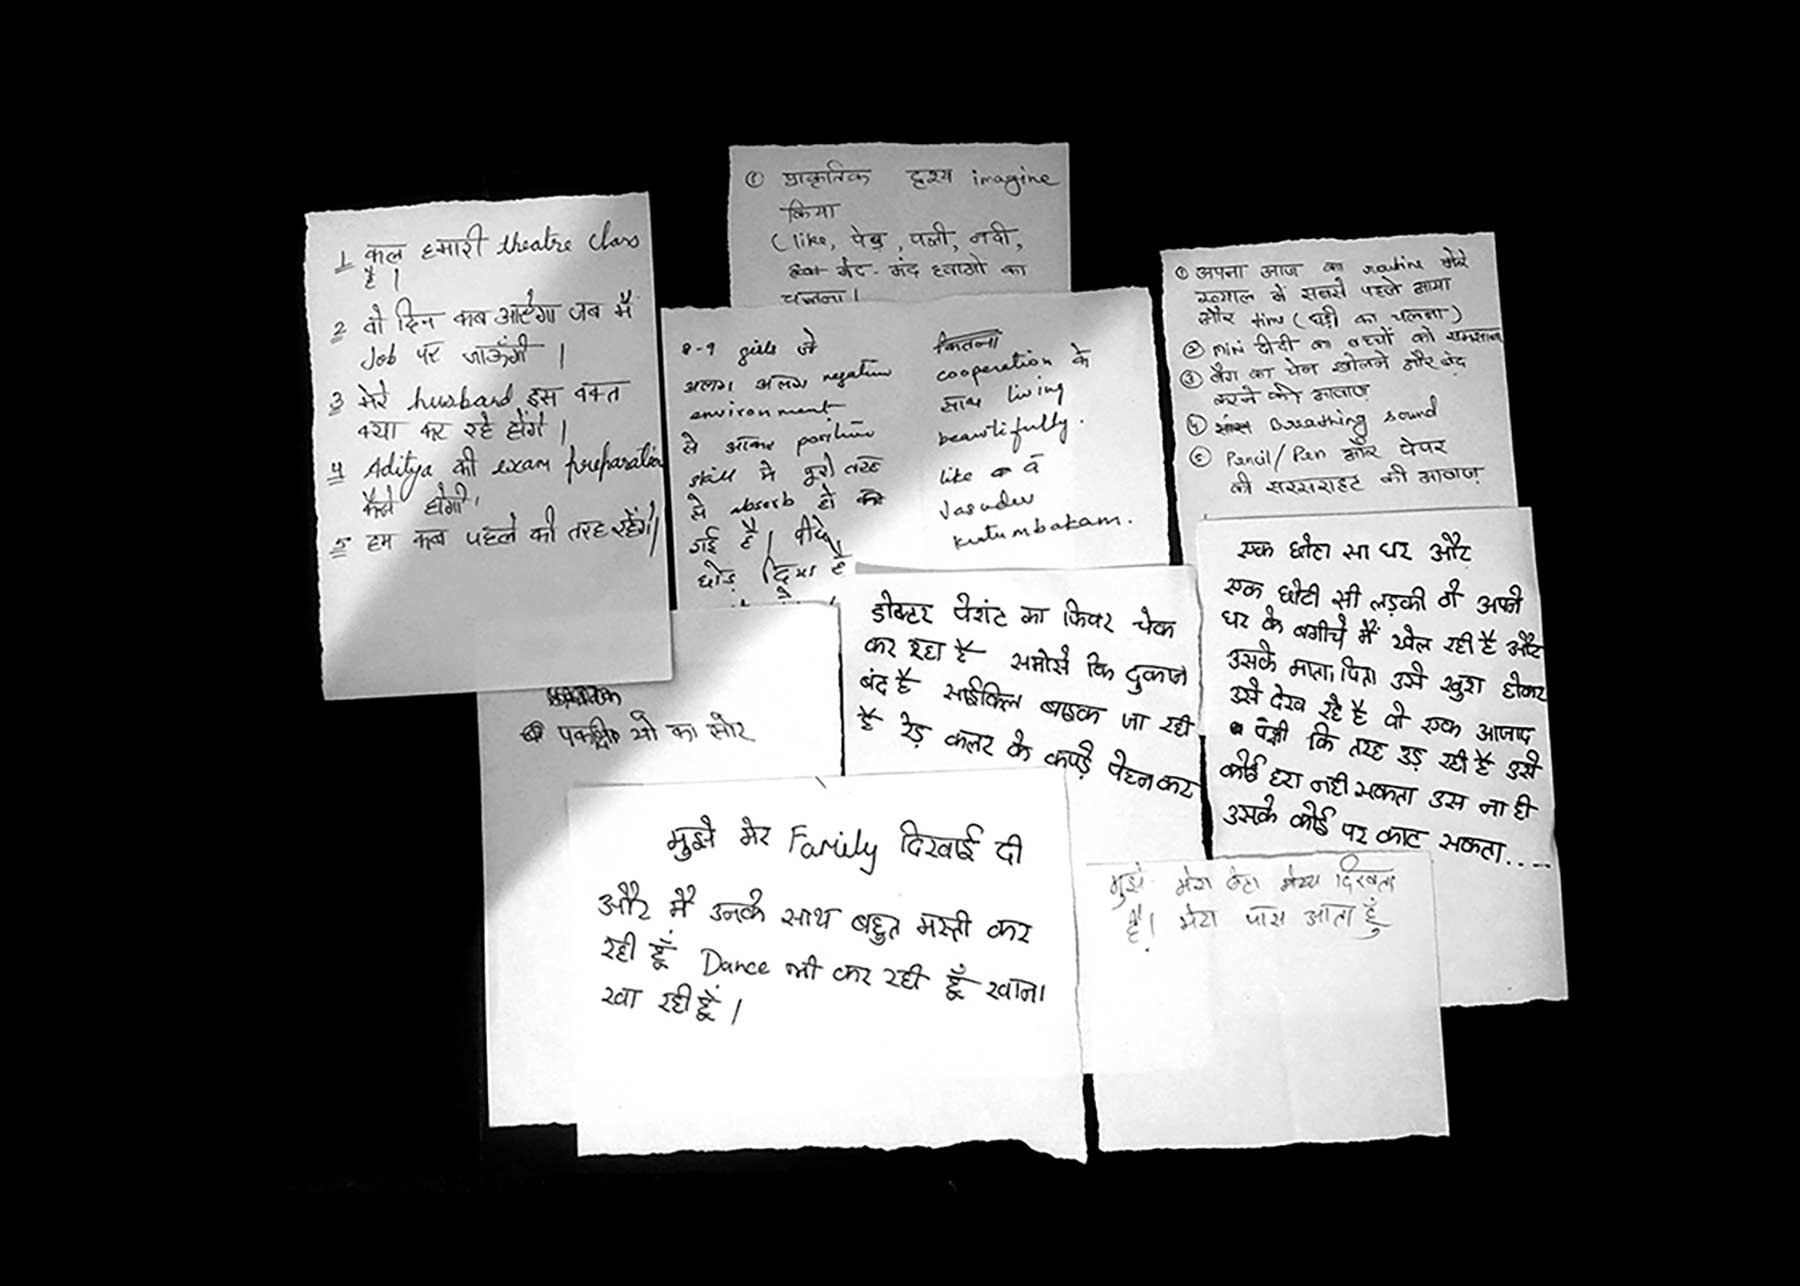 1 कल हमारी theatre class
है।
2 वो दिन कब आएगा जब मैं
Job पर जाऊँगी।
3 मेरे husband इस वक्त
क्या कर रहे होंगे।
4 Aditya की exam preparation
कैसे होगी।
5 हम कब पहले की तरह रहेंगे।
① प्राकृतिक दृश्य imagine
किया
(like, पेड़, पत्ती, नदी,
मंद-मंद हवाओ का
चलना।
8-9 girls जो
अलग अलग negative
environment
से आकर positive
skill मे पूरी तरह
से absorb हो
गई है।
छोड़ दिया है
कितना
cooperation के
साथ living
beautifully.
like a
Vasudev
kutumbakam.
① अपना आज का routine मेरे
ख्याल में सबसे पहले आया
और time (घड़ी का चलना)
② mini दीदी का बच्चों को समझाना
③ बैग का चेन खोलने और बंद
करने की आवाज़
④ Breathing sound
⑤ Pencil/Pen और पेपर
की सरसराहट की आवाज़
एक छोटा सा घर और
एक छोटी सी लड़की जो अपने
घर के बगीचे में खेल रही है और
उसके माता पिता उसे खुश होकर
उसे देख रहे है वो एक आजाद
पंछी कि तरह उड़ रही है उसे
कोई हरा नही सकता उस ना ही
उसके कोई पर काट सकता....
डोक्टर पेशंट का फिवर चेक
कर रहा है समोसे कि दुकान
बंद है साईकिल बाइक जा रही
है रेड़ कलर के कपड़े पेहनकर
यो का सोर
मुझे मेर Family दिखाई दी
और मैं उनके साथ बहुत मस्ती कर
रही हूँ Dance भी कर रही हूँ खाना
खा रही हूँ।
मुझे मेरा बेटा दिखता
है। मेरा पास आता हूँ